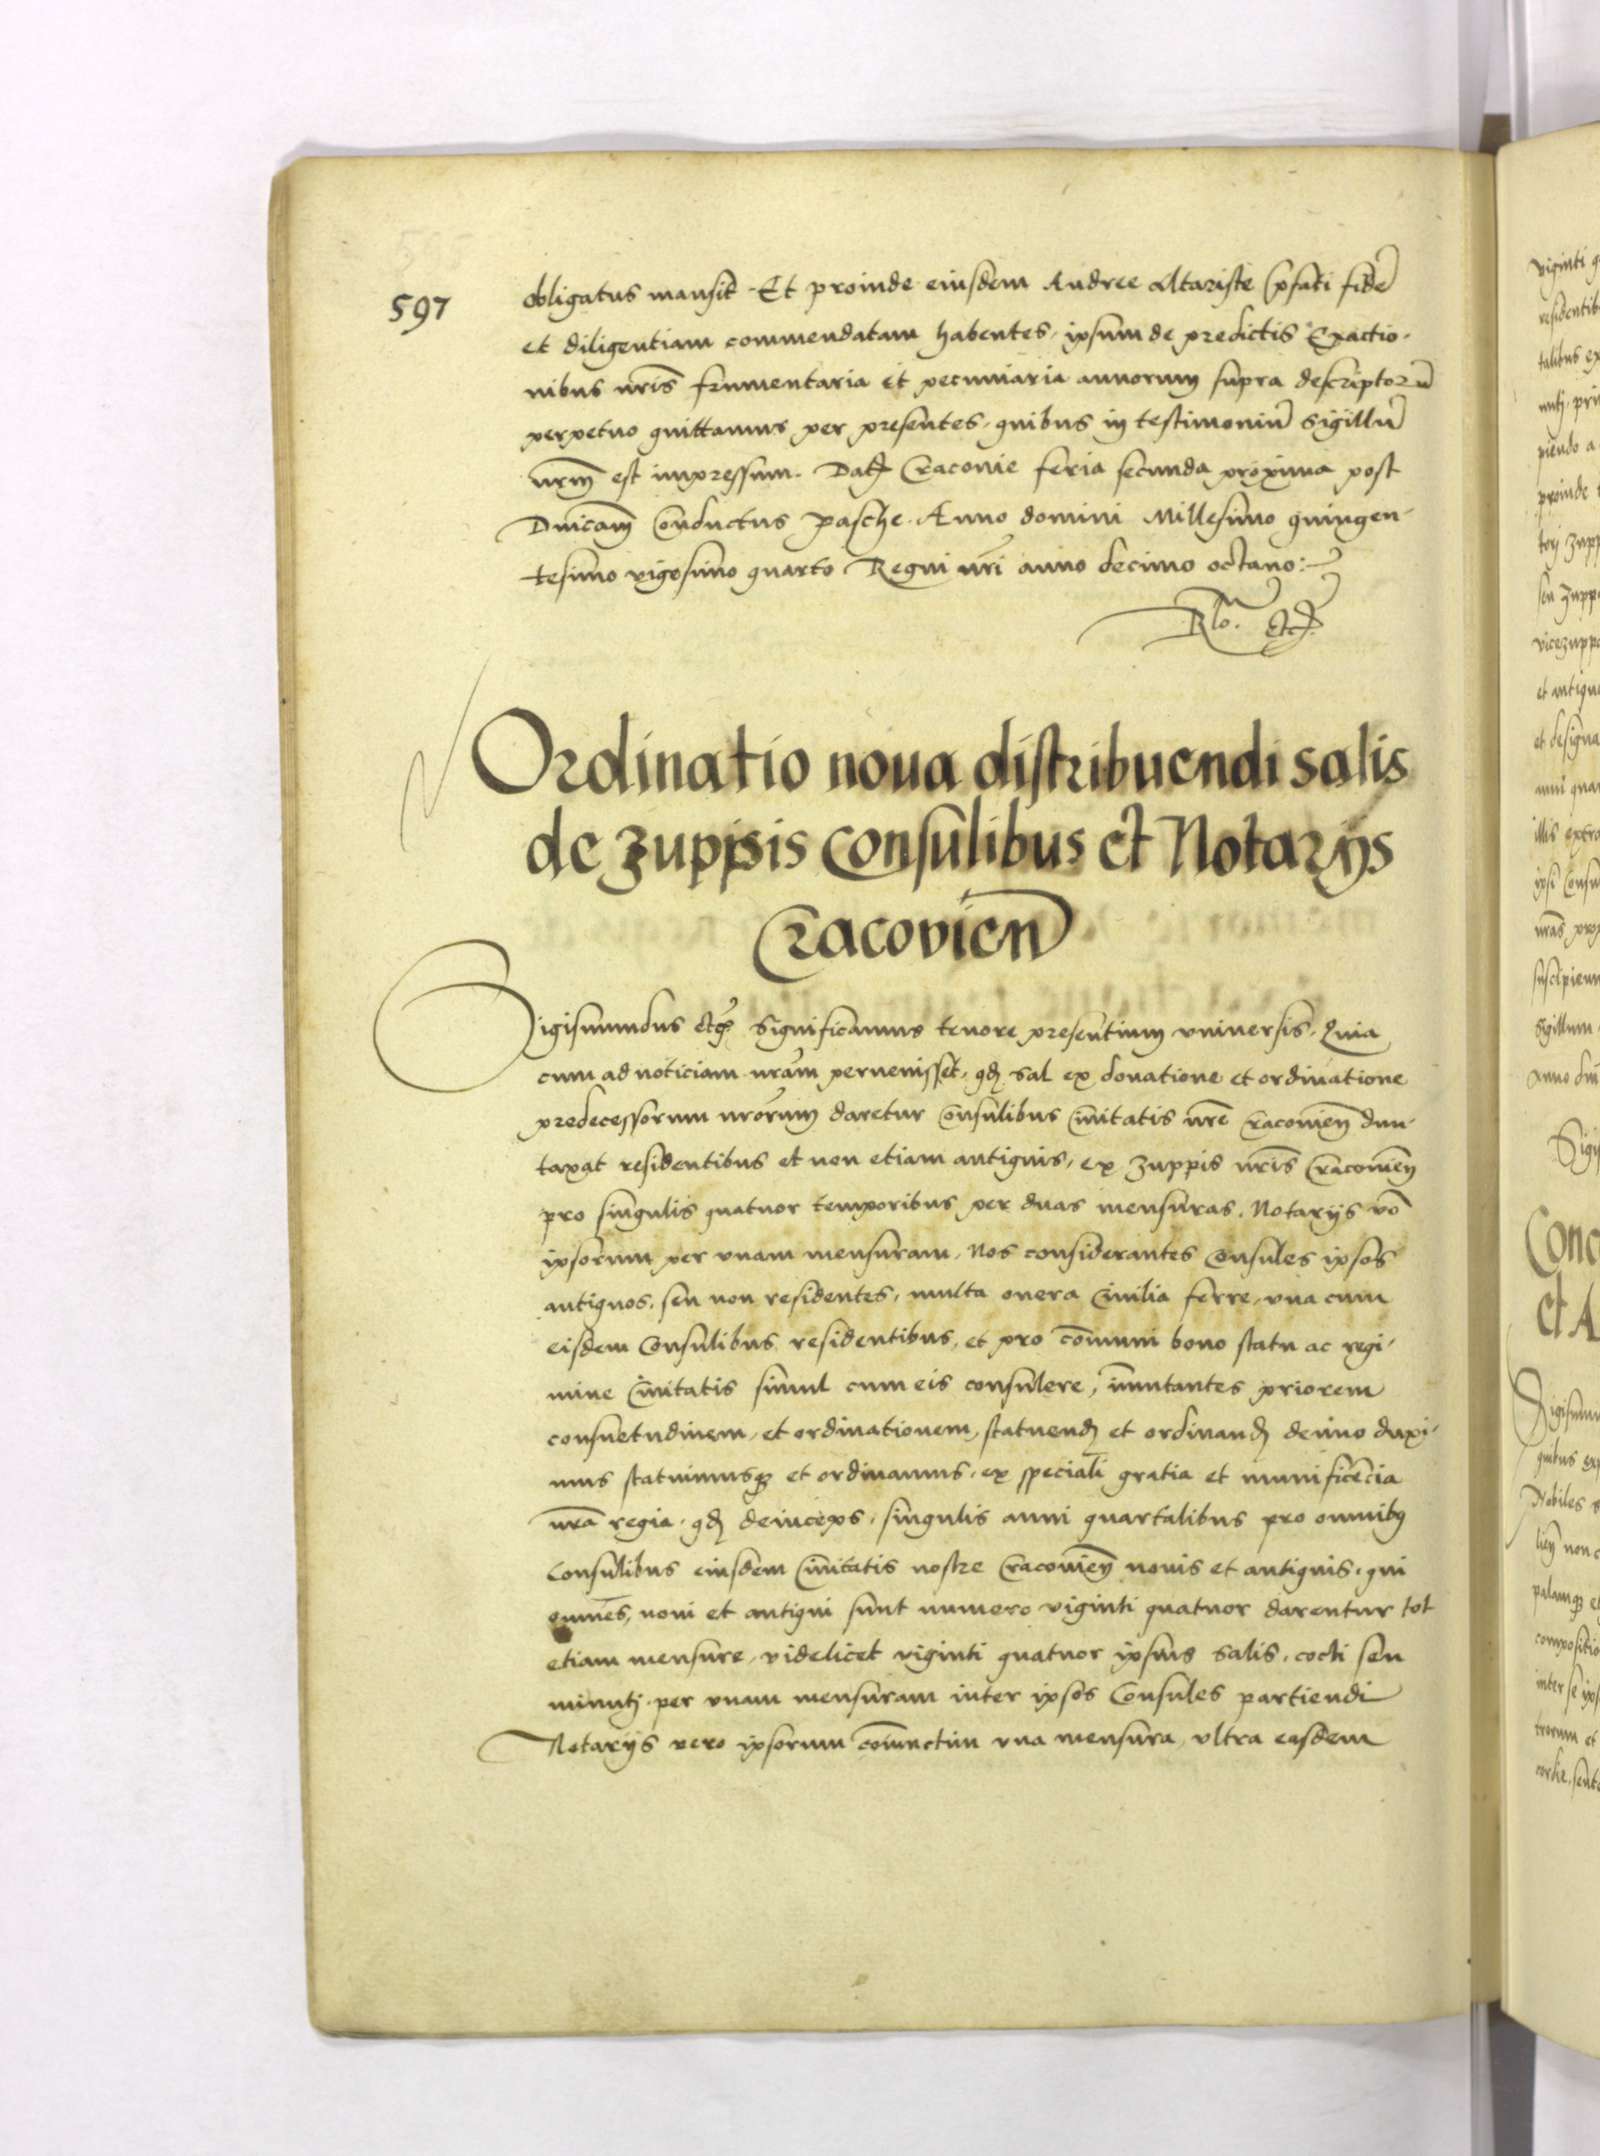 597
obligatus mansit. Et proinde eiusdem Andree Altariste p̃fati fidẽ
et diligentiam commendatam habentes, ipsum de predictis Exactio-
nibus nr̃is frumentaria et pecuniaria annorum supra descriptorũ
perpetuo quittamus per presentes, quibus in testimoniũ Sigillũ
nrm̃ est impressum. Dat̃ Cracovie feria secunda proxima post
Dnicam̃ Conductus Pasche. Anno domini Millesimo quingen-
tesimo vigesimo quarto Regni nr̃i anno decimo octavo:
Rlo. etc̃
Ordinatio noua distribuendi salis
de zuppis Consulibus et Notarijs
Cracovien̄
Sigismundus etc̃ Significamus tenore presentium vniversis. Quia
cum ad noticiam nrãm pervenisset, qđ sal ex donatione et ordinatione
predecessorum nrõrum daretur Consulibus Civitatis nrẽ Cracovien̄ dun-
taxat residentibus et non etiam antiquis, ex zuppis nrĩs Cracovien̄
pro singulis quatuor temporibus per duas mensuras. Notarijs võ
ipsorum per vnam mensuram. Nos considerantes Consules ipsos
antiquos, seu non residentes, multa onera Civilia ferre, vna cum
eisdem Consulibus residentibus, et pro cõmuni bono statu ac regi-
mine Civitatis simul cum eis consulere, im̃utantes priorem
consuetudinem, et ordinationem, statuend̃ et ordinand̃ denuo duxi-
mus statuimusqȝ et ordinamus, ex speciali gratia et munificencia
nrã regia, qđ deinceps, singulis anni quartalibus pro omnibȝ
Consulibus eiusdem Civitatis nostre Cracovien̄ novis et antiquis, qui
omnes, novi et antiqui sunt numero viginti quatuor darentur tot
etiam mensure, videlicet viginti quatuor ipsius salis, cocti seu
minutj, per vnam mensuram inter ipsos Consules partiendi
Notarijs vero ipsorum cõiunctim vna mensura, vltra easdem